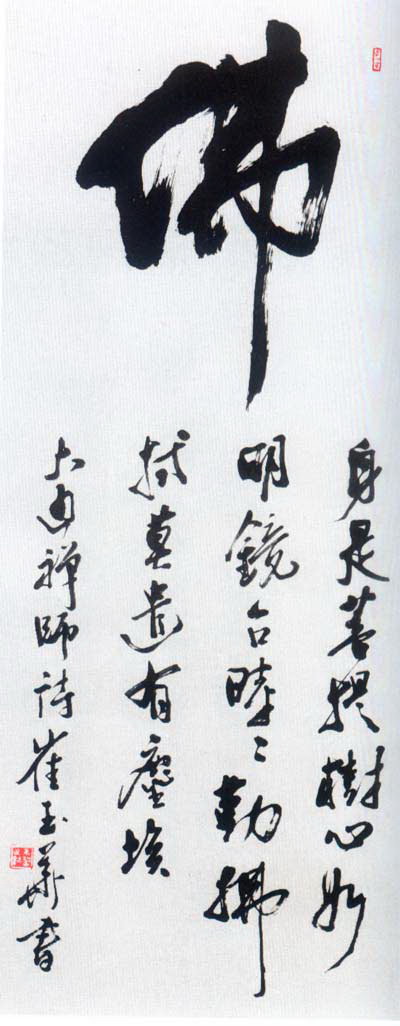 佛
身是菩提樹心如
明鏡台時〻勤拂
拭莫遣有塵埃
大通禅師詩崔玉華書